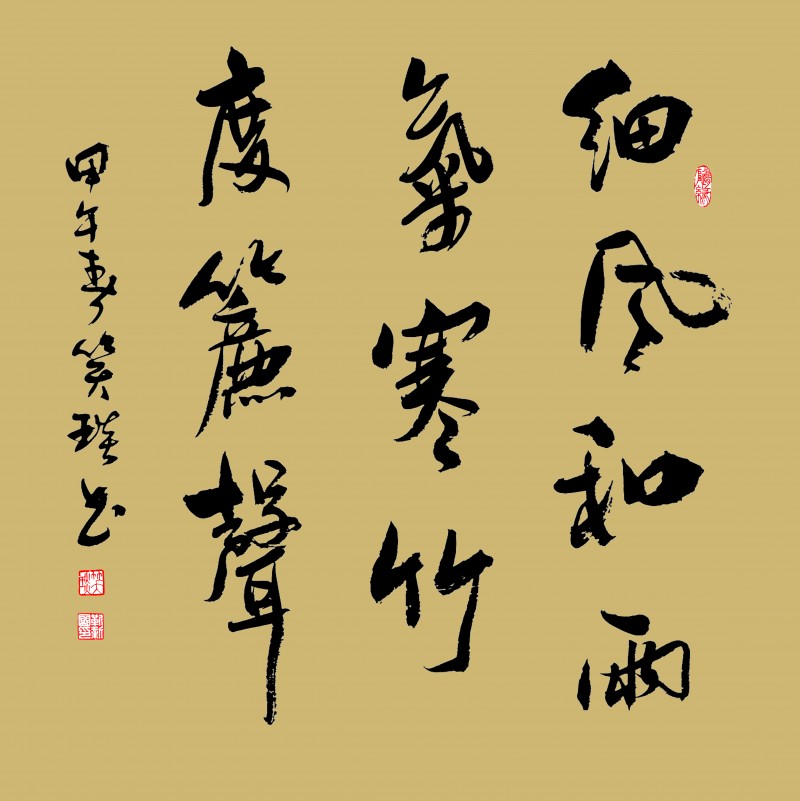 細風和雨
氣寒竹
度簾聲
甲午春笑琰书